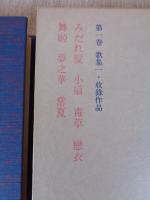 第一巻 歌集一・收錄作品
みだれ髮 小扇 毒草 戀衣
舞姬 夢之華 常夏